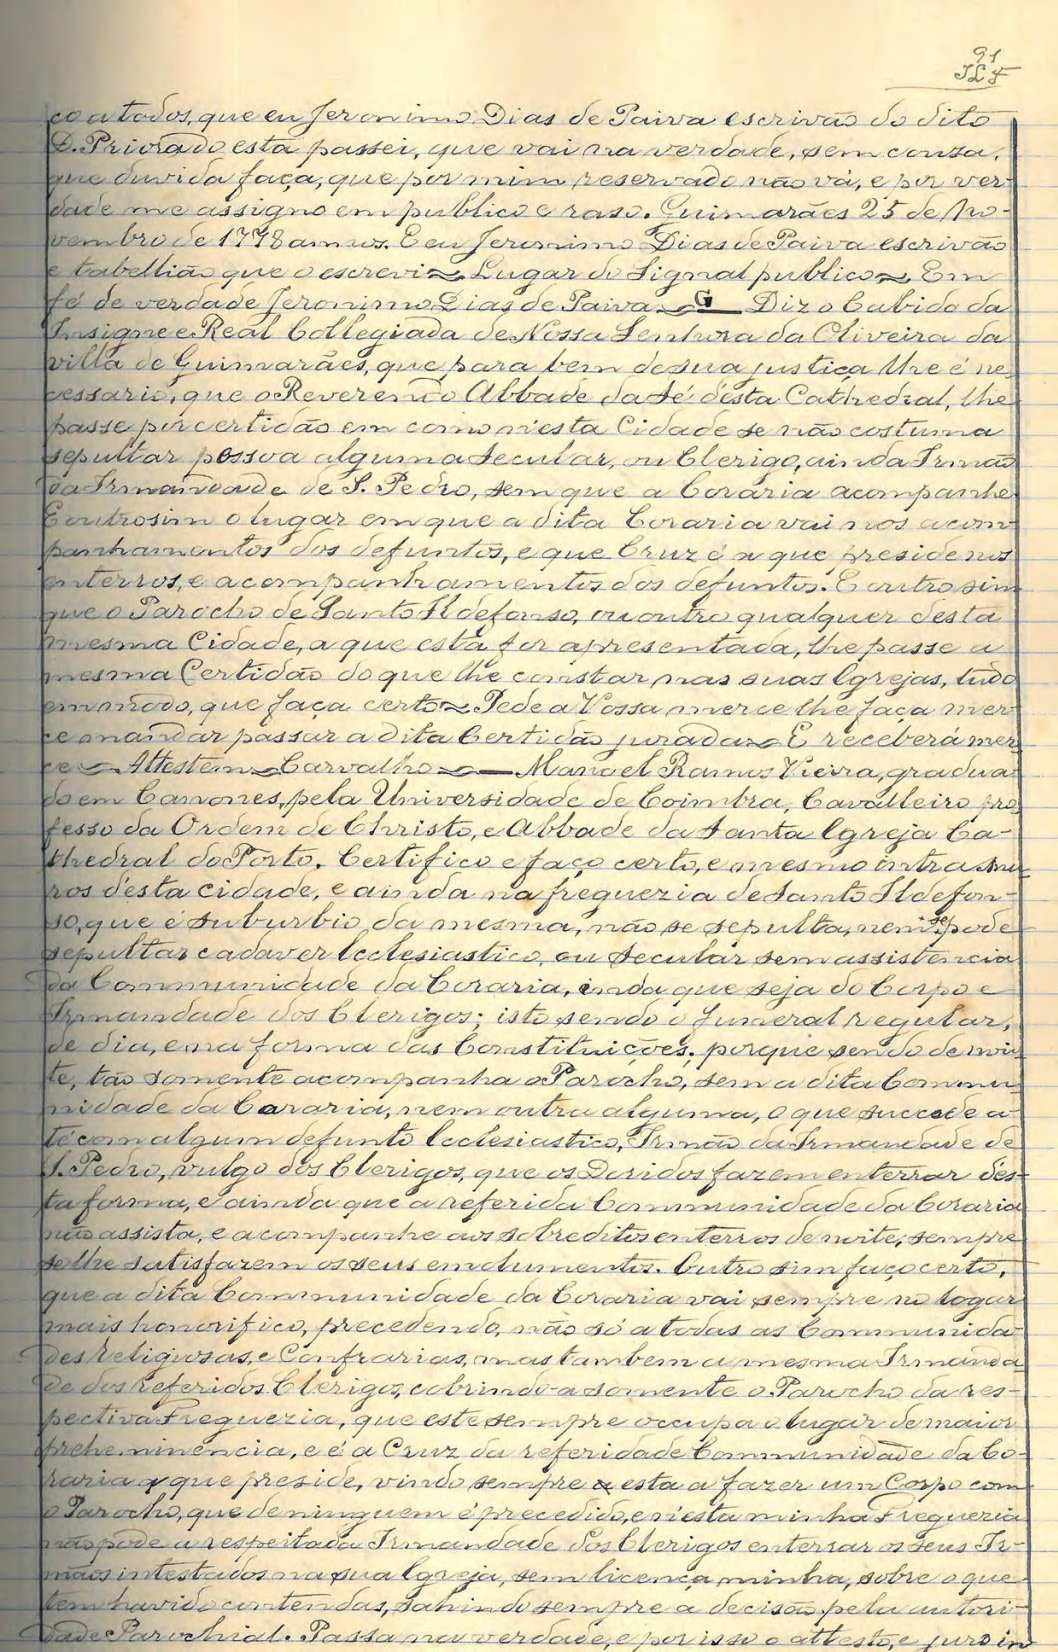 91
co a todos, que eu Jeronimo Dias de Paiva escrivão do dito
D. Priorado esta passei, que vai na verdade, sem couza,
que duvida faça, que por mim reservado não vá, e por ver-
dade me assigno em publico e raso. Guimarães 25 de No-
vembro de 1778 annos. E eu Jeronimo Dias de Paiva escrivão
e tabellião que o escrevi ~ Lugar do Signal publico ~ Em
fé de verdade Jeronimo Dias de Paiva ~ G — Diz o Cabido da
Insigne e Real Collegiada de Nossa Senhora da Oliveira da
villa de Guimarães, que para bem de sua justiça lhe é ne-
cessario, que o Reverendo Abbade da Sé d'esta Cathedral, lhe
passe por certidão em como n'esta Cidade se não costuma
sepultar pessoa alguma secular, ou Clerigo, ainda Irmão
da Irmandade de S. Pedro, sem que a Coraria acompanhe
E outrosim o lugar em que a dita Coraria vai nos acom-
panhamentos dos defuntos, e que Cruz é a que preside nos
enterros, e acompanhamentos dos defuntos. E outro sim
que o Parocho de Santo Ildefonso, ou outro qualquer desta
mesma Cidade, a que esta for apresentada, lhe passe a
mesma Certidão do que lhe constar nas suas Igrejas, tudo
em modo, que faça certo ~ Pede a Vossa merce lhe faça mer-
ce mandar passar a dita Certidão jurada ~ E receberá mer-
ce ~ Attestem ~ Carvalho ~ — Manoel Ramos Vieira, gradua-
do em Canones, pela Universidade de Coimbra, Cavalleiro pro-
fesso da Ordem de Christo, e Abbade da Santa Igreja Ca-
thedral do Porto. Certifico e faço certo, e mesmo intra mu-
ros d'esta cidade, e ainda na freguezia de Santo Ildefon-
so, que é suburbio da mesma, não se sepulta, nem se pode
sepultar cadaver Ecclesiastico, ou secular sem assistencia
da Communidade da Coraria, inda que seja do Corpo e
Irmandade dos Clerigos; isto sendo o funeral regular,
de dia, e na forma das Constituições; porque sendo de noi-
te, tão somente acompanha o Parocho, sem a dita Commu-
nidade da Coraria, nem outra alguma, o que succede a-
té com algum defunto Ecclesiastico, Irmão da Irmandade de
S. Pedro, vulgo dos Clerigos, que os Doridos fazem enterrar d'es-
ta forma, e ainda que a referida Communidade da Coraria
não assista, e acompanhe aos sobreditos enterros de noite, sempre
se lhe satisfazem os seus emolumentos. Outro sim faço certo,
que a dita Communidade da Coraria vai sempre no logar
mais honorifico, precedendo, não só a todas as Communida-
des religiosas, e Confrarias, mas tambem a mesma Irmanda-
de dos referidos Clerigos, cobrindo-a somente o Parocho da res-
pectiva Freguezia, que este sempre occupa o lugar de maior
prehe minencia, e é a Cruz da referida de Communidade da Co-
raria a que preside, vindo sempre a esta a fazer um Corpo com
o Parocho, que de ninguem é precedido, e n'esta minha Freguezia
não pode a respeitada Irmandade dos Clerigos enterrar os seus Ir-
mãos intestados na sua Igreja, sem licença minha, sobre o que
tem havido contendas, sahindo sempre a decisão pela autori-
dade Parochial. Passa na verdade, e por isso o attesto, e juro in